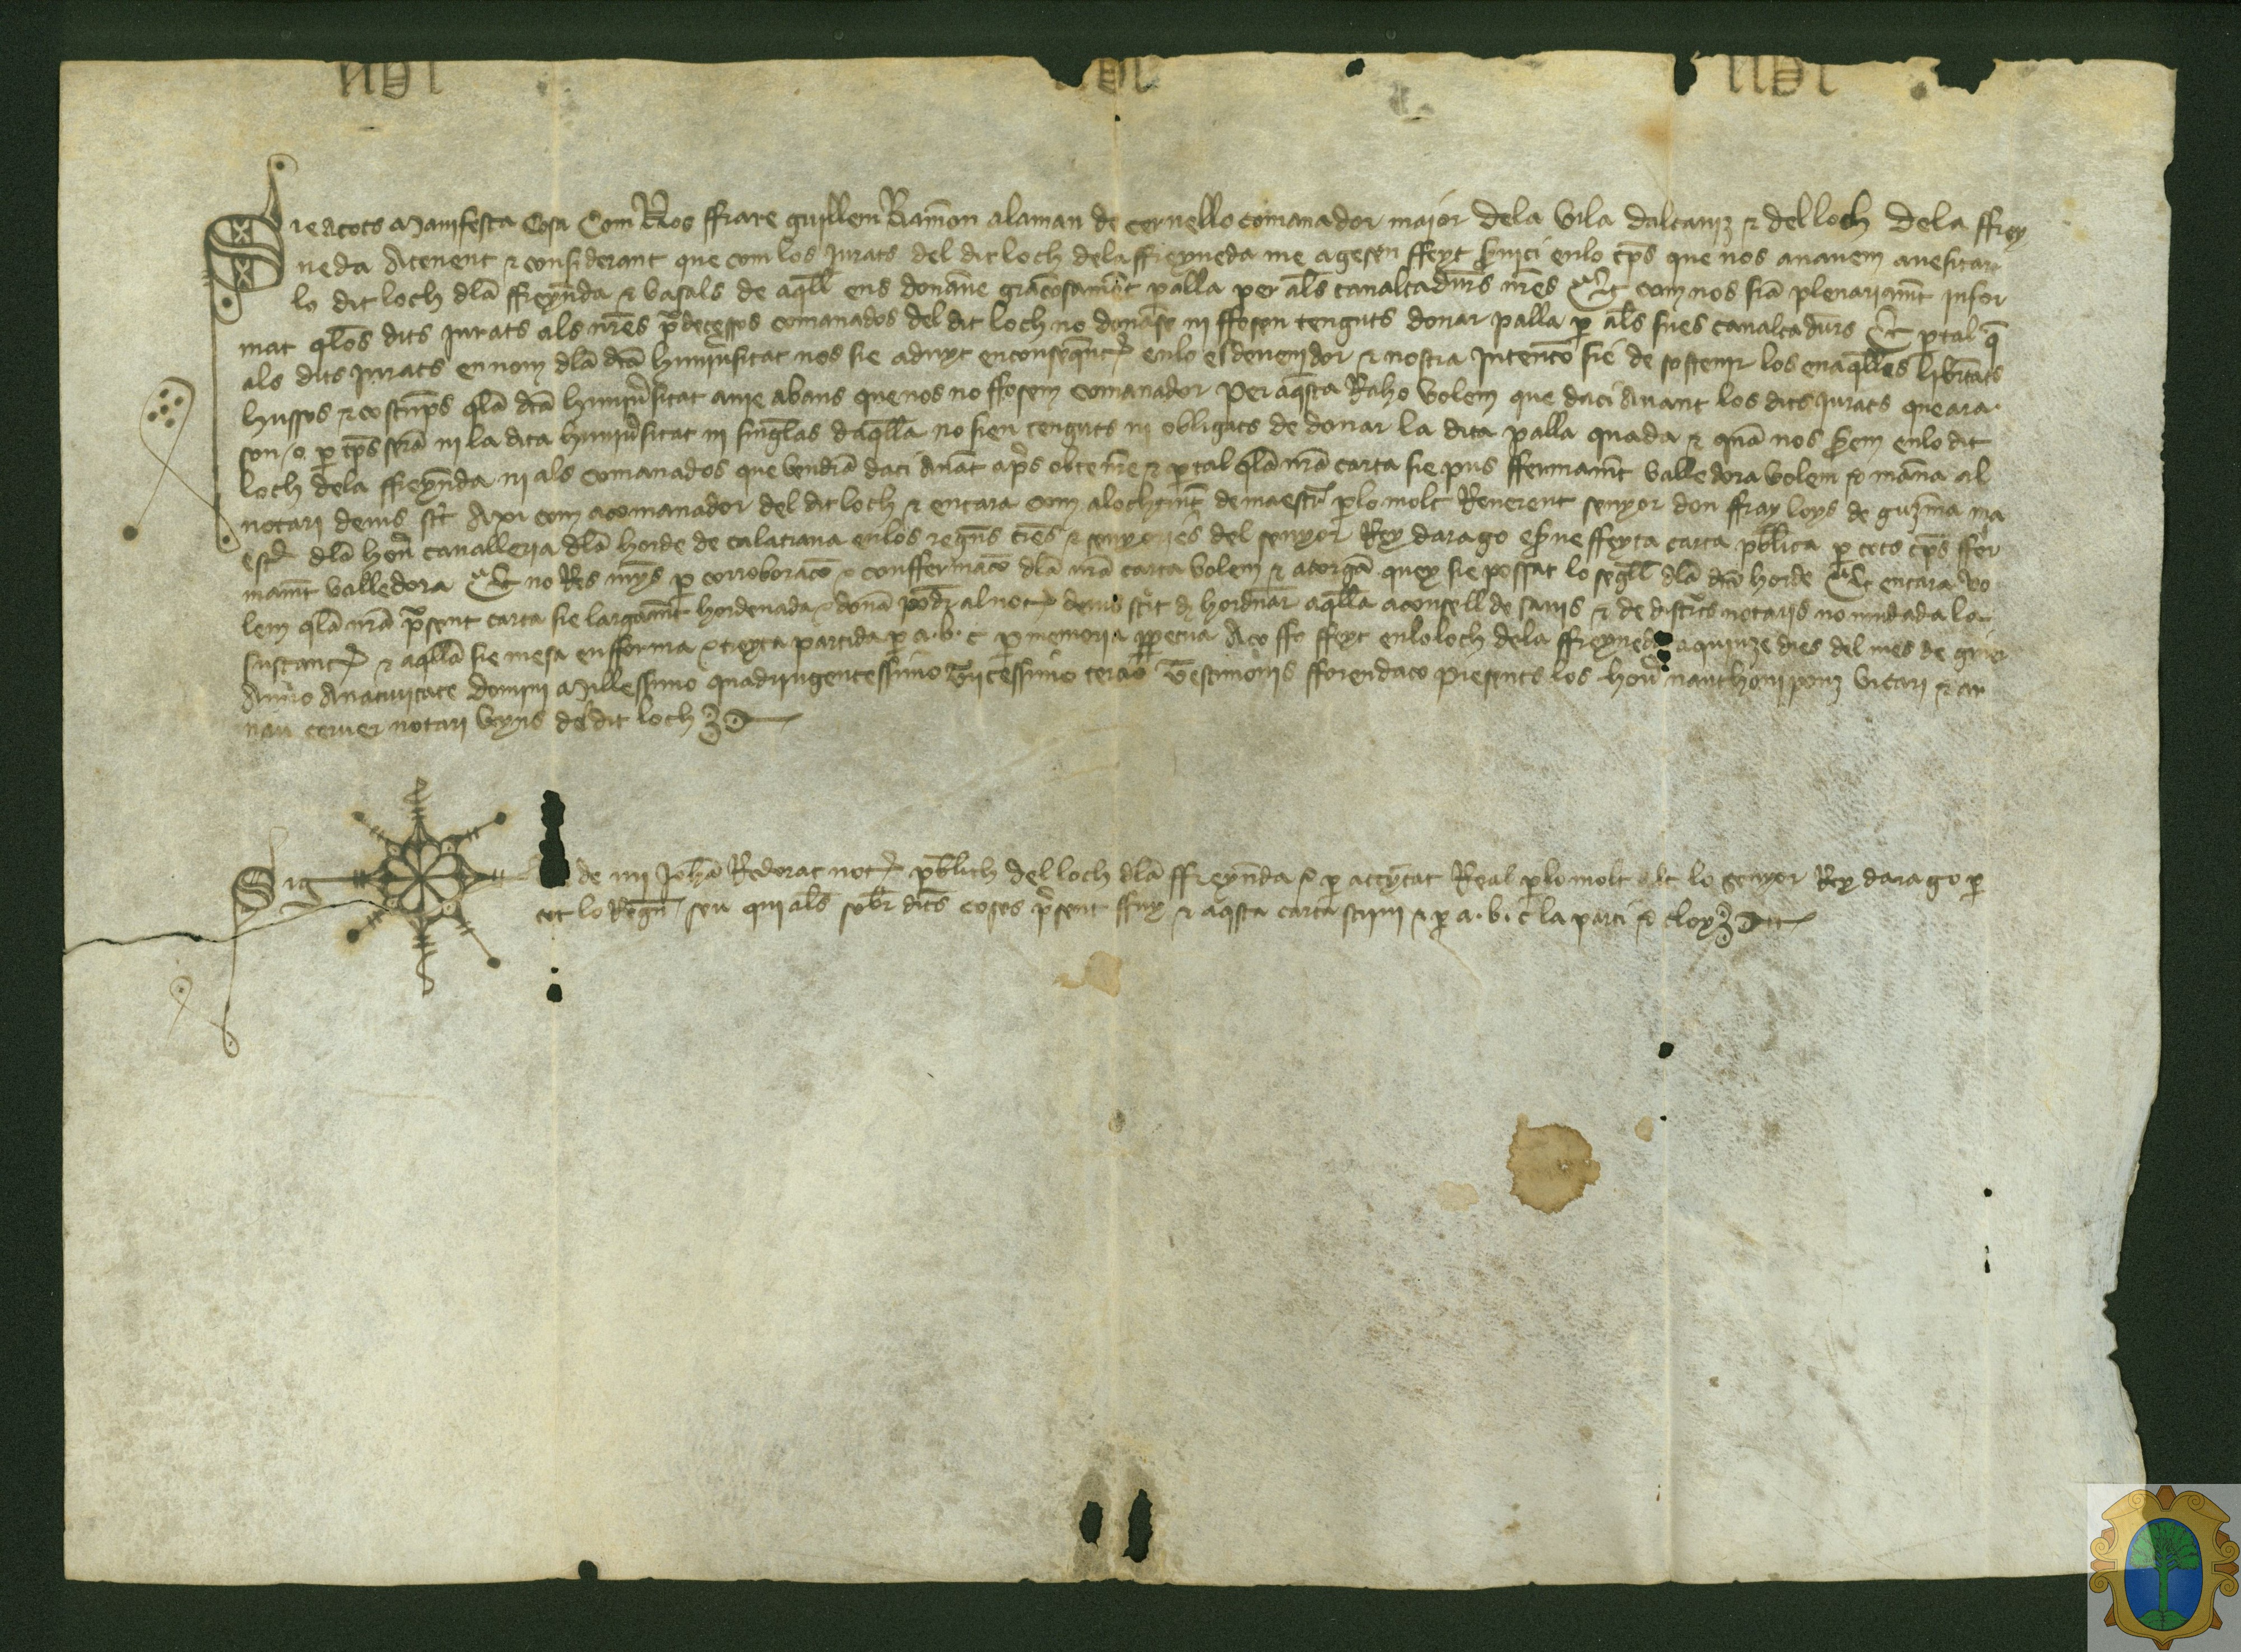 Sie atots Manifesta Cosa Com Nos ffrare guillem Ramon alaman de cervello comanador maior dela vila dalcaniz e del loch dela ffrey
neda Atenent e considerant que com los jurats del dit loch dela ffreyneda me agesen ffeyt servici enlo tps que nos anavem avesitar
lo dit loch dla ffreynda e vasals de aqll ens donaven graciosament palla per als cavalcadurs nres Et com nos siam plenariamt infor
mat qlos dits jurats als nres predecessos comanados del dit loch no donase ni ffosen tenguts donar palla per als sues cavalcadurs Et ptal q
als dits jurats en nom dla dta huniversitat nos sie aduyt en conseqnt enlo esdevenidor e nostra intenco sie de sostenir los en aqlles libertats
hussos e costums qla dta huniversitat avie abans que nos no ffosem comanador Per aqsta Raho volem que daci avant los dits jurats que ara
son o per tps seran ni la dita huniversitat ni singlas daqlla no sien tenguts ni obligats de donar la dita palla quada e quan nos serem enlo dit
loch dela ffreynda ni als comanados que vendran daci avat apres e ptal qla nra carta sie pus ffermamt valledora volem e mana al
notari deius scrit Axi com acomanador del dit loch e encara com alochtint de maestr plo molt Reverent senyor don ffray loys de guzma ma
estr dla hon cavalleria dla horde de calatrava enlos regns tres e senyories del senyor Rey darago esser ne ffeyta carta publica per tots tps ffer
mamt valledora Et no Res mys per corroboraco e confermaco dla nra carta volem e atorgam quey sie possat lo segll dla dta horde Et encara vo
lem qla nra present carta sie largamt hordenada e dona poder al not deius scrit d hordnar aqlla aconsell de savis e de discrets notaris no mudada la
sustanc e aqlla sie mesa en fforma e treyta partida per a.b.c per memoria perpetua Aço ffo ffeyt enlo loch dela ffreyneda aquinze dies del mes de giner
Anno Anativitate domini Millessimo quadringentessimo Vicessimo tercio Testimonis fforen daço presents los hon nanthoni ponz vicari e ar
nau cerver notari veyns del dit loch
Sig de mi Joha Redorat not publich del loch dla ffreynda e per actoritat Real plo molt alt lo senyor Rey darago per
tot lo Regn seu qui als sobr dits coses present ffuy e aqsta carta scrivi e per a.b.c la parti e cloy